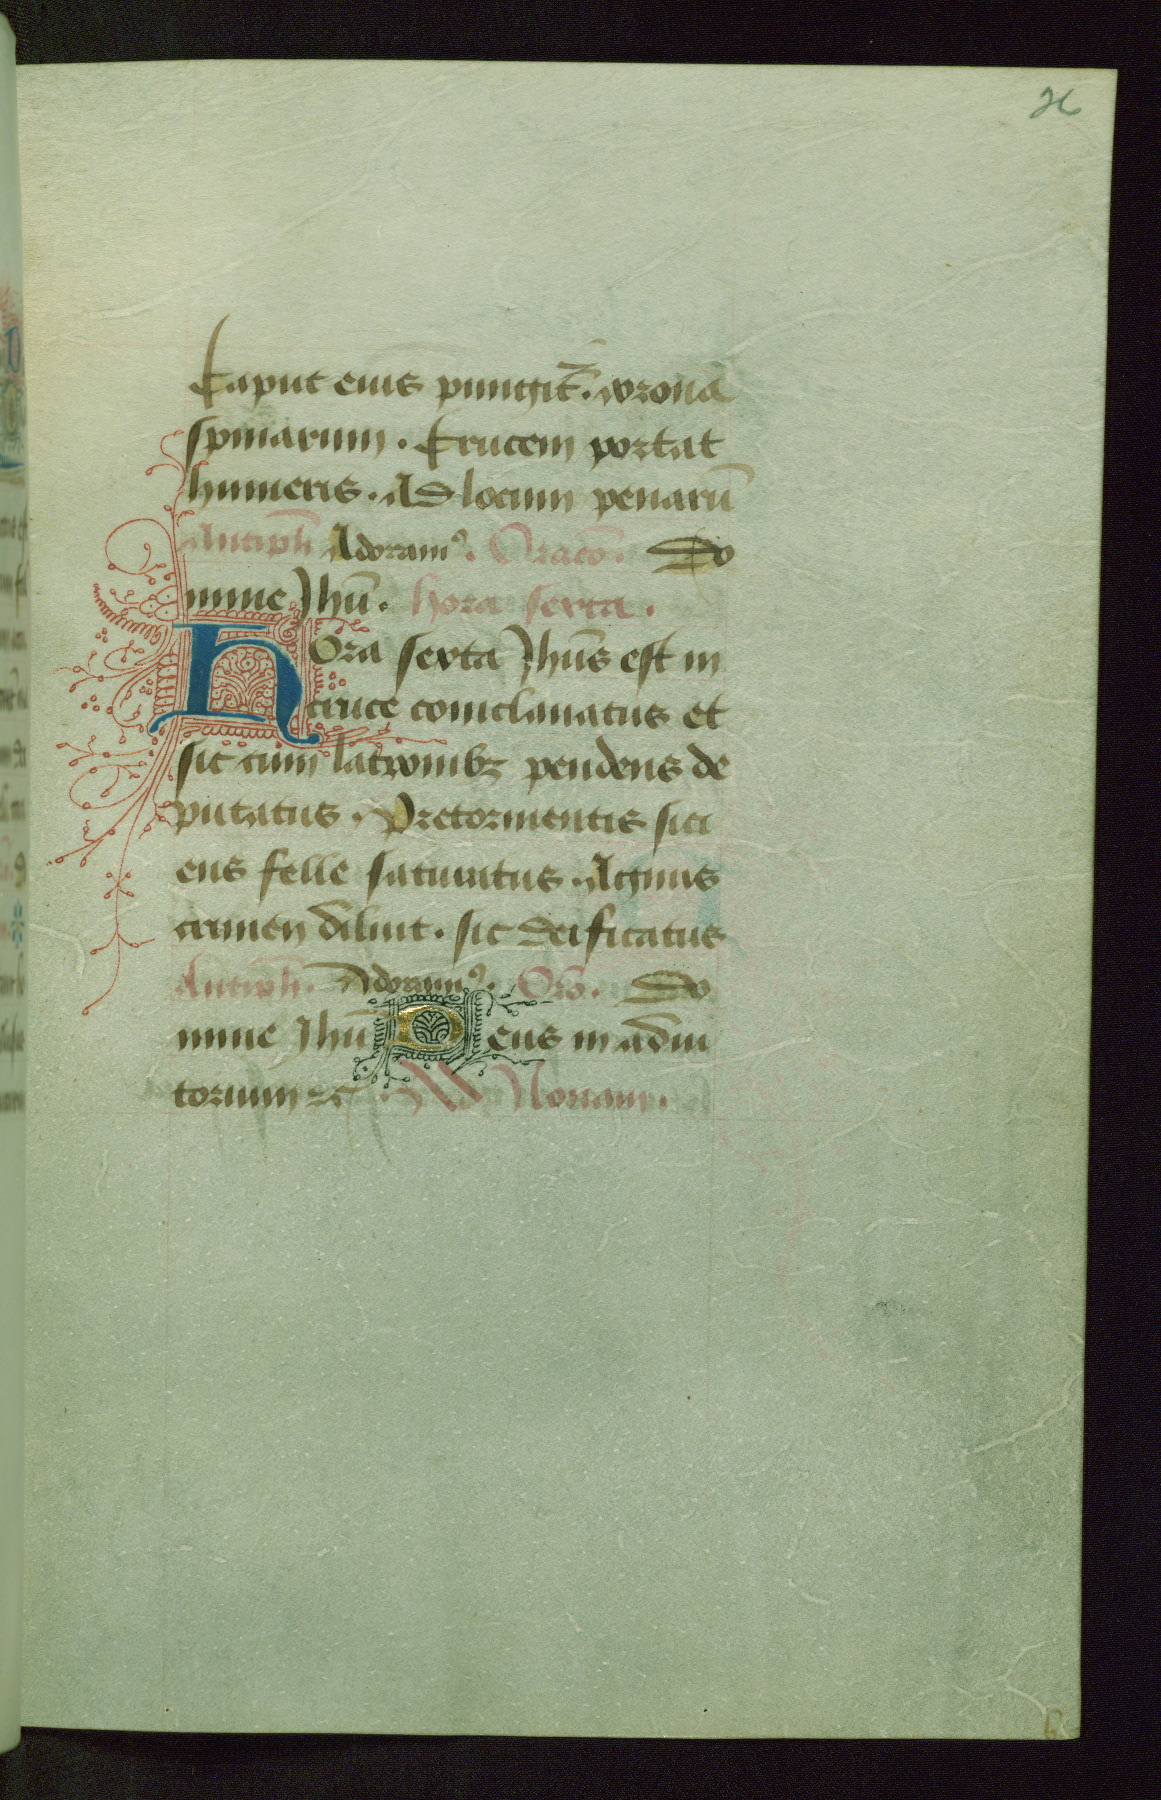 26
Caput eius pungit᷑. corona
spinarum. Crucem portat
humeris. Ad locum penarū
Antiph̄ Adoramꝰ. Oracō. Do
mine Jhū. hora sexta.
Hora sexta Jhūs est in
cruce conclauatus et
sic cum latronibꝫ pendens de
putatus. Pretormentis sici
ens felle saturatus. Agnus
crimen diluit. sic deificatus
Antiph̄. Adoramꝰ. Orō. Do
mine Jhū Deus in adiu
torium ⁊c Ad Nonam.